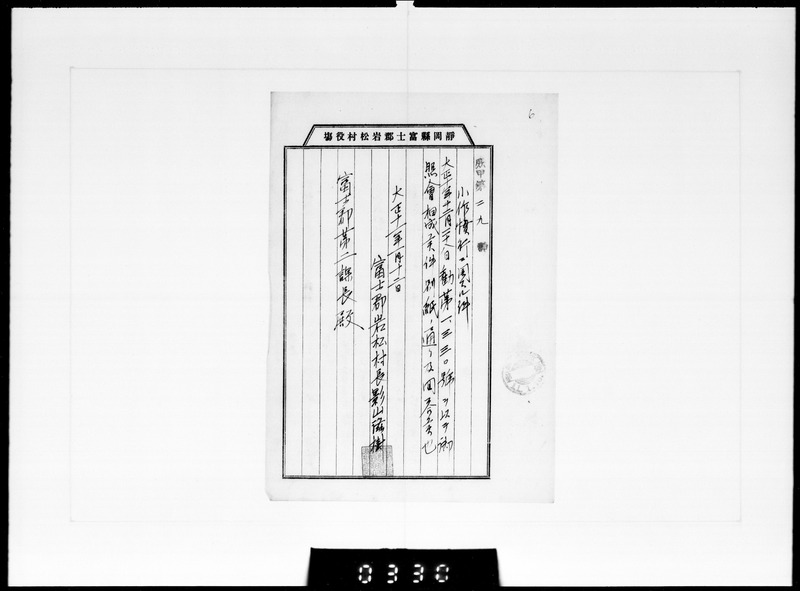 靜岡縣富士郡岩松村役塲
庶甲第二九號
小作慣行ニ関スル件
大正十年十二月二十八日勸第一、三三〇號ヲ以テ御
照會相成候件別紙ノ通リ及回答候也
大正十一年一月十二日
富士郡岩松村長影山
富士郡第二課長殿
6
0330